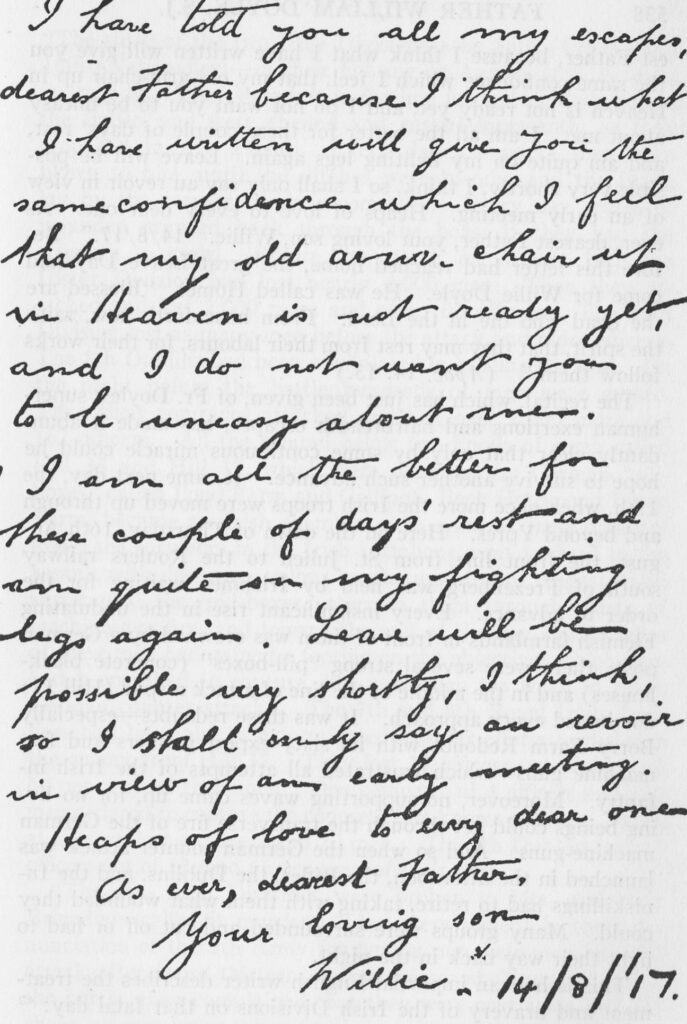 I have told you all my escapes,
dearest Father because I think what
I have written will give you the
same confidence which I feel
that my old arm-chair up
in Heaven is not ready yet
and I do not want you
to be uneasy about me.
I am all the better for
these couple of days' rest and
am quite on my fighting
legs again. Leave will be
possible very shortly, I think,
so I shall only say au revoir
in view of an early meeting.
Heaps of love to every dear one
As ever, dearest Father,
Your loving son
Willie. 14/8/17.